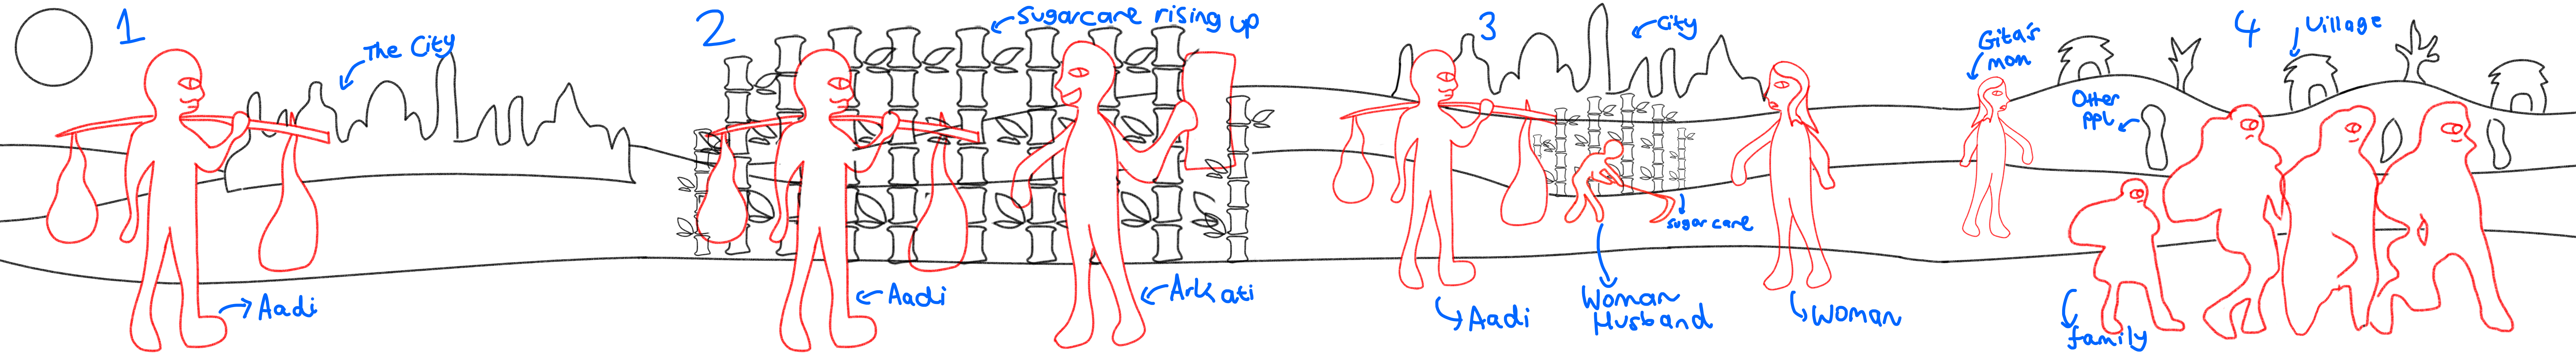 1
The City
Aadi
2
Sugarcane rising up
Aadi
Arkati
3
City
Sugarcane
Aadi
Woman
Husband
Woman
Gita's
mom
4
Village
Other
ppl
family